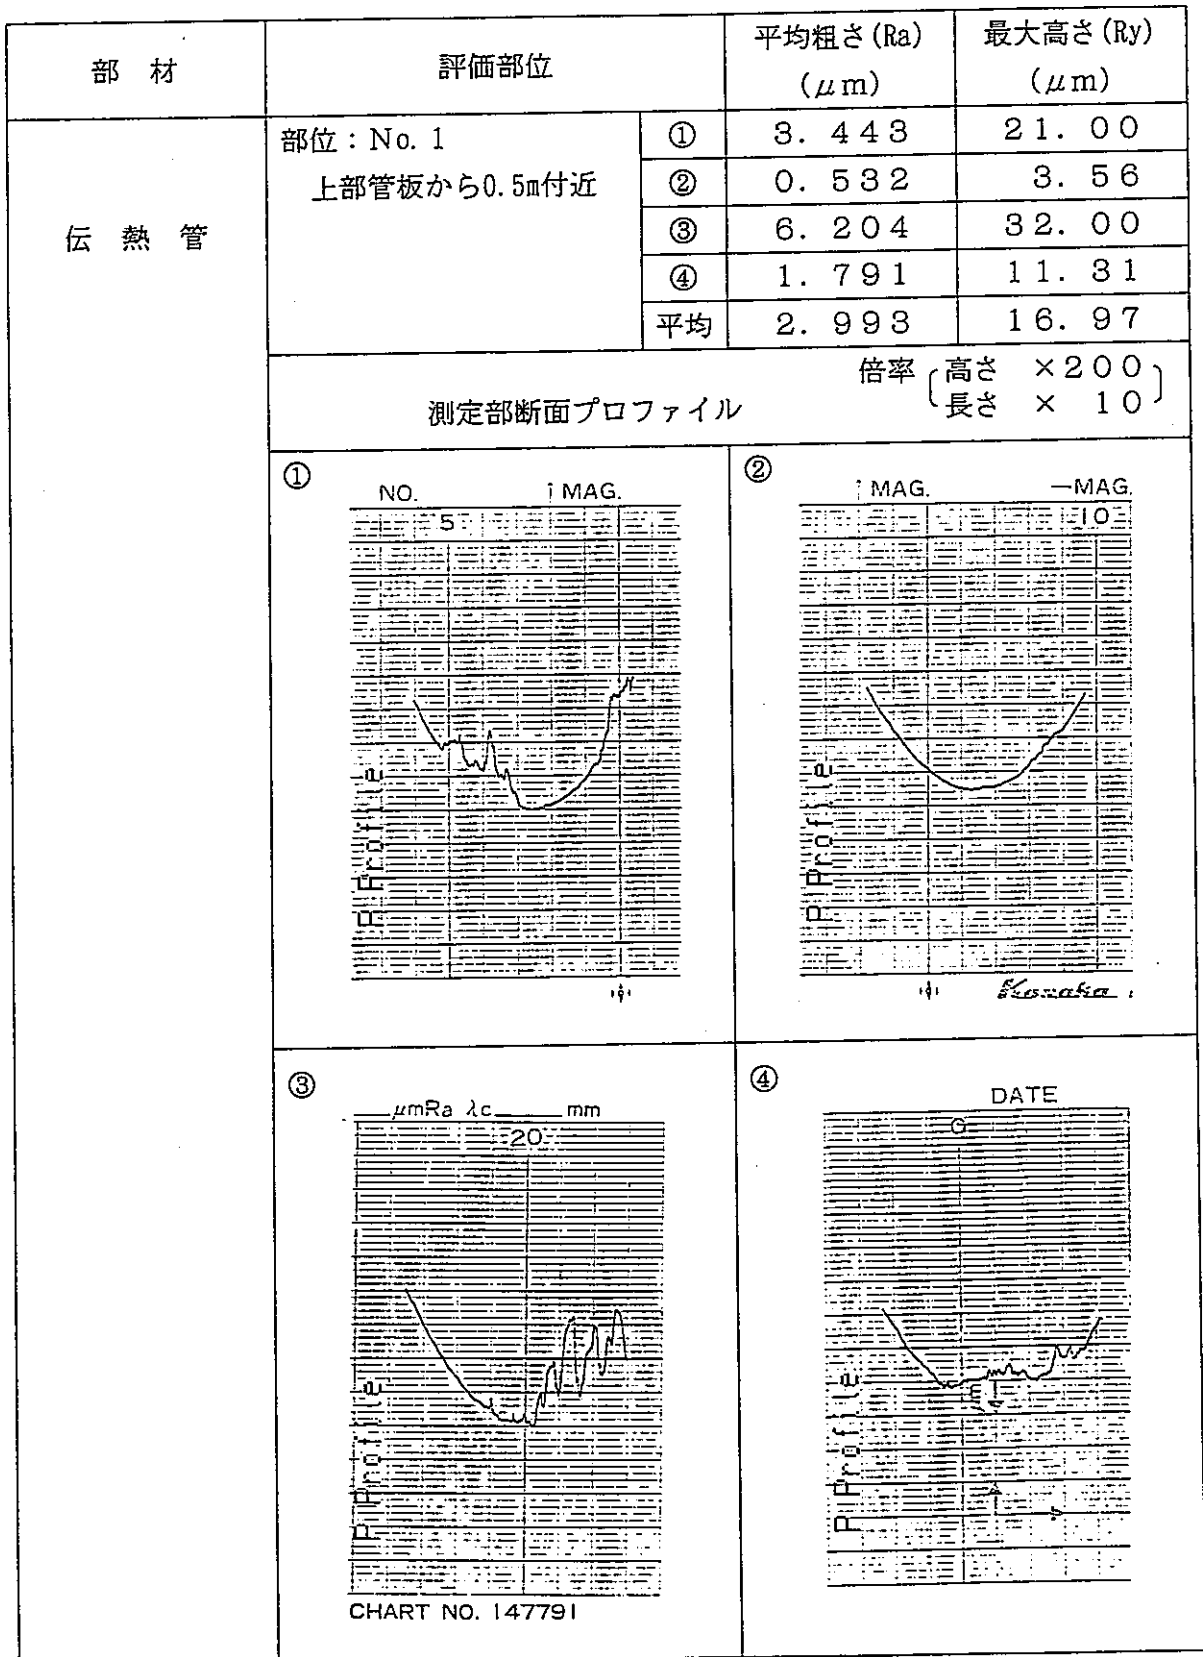 部材 評価部位 平均粗さ(Ra) 最大高さ(Ry)
(μm) (μm)
伝熱管
部位：No. 1
上部管板から0.5m付近
① 3. 443 21. 00
② 0. 532 3. 56
③ 6. 204 32. 00
④ 1. 791 11. 31
平均 2. 993 16. 97
測定部断面プロファイル
倍率 高さ ×200
長さ × 10
①
NO. ↑MAG.
5
P Profile
②
↑MAG. —MAG.
10
P Profile
Kosaka
③
μmRa λc mm
20
P Profile
CHART NO. 147791
④
DATE
P Profile